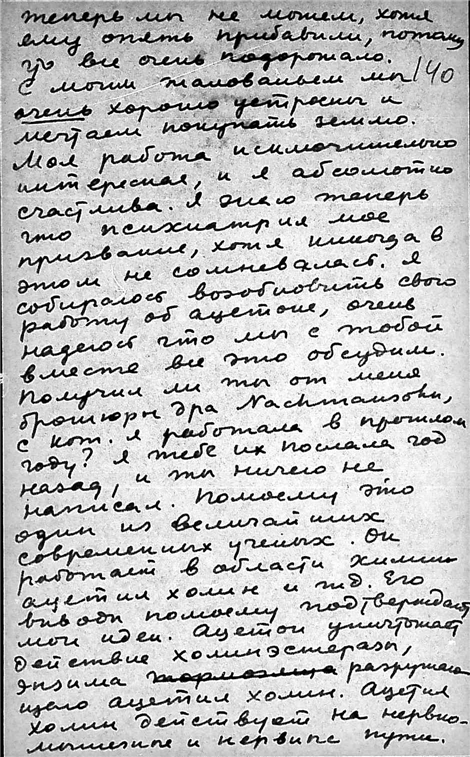 теперь мы не можем, хотя
ему опять прибавили, потому
что все очень подорожало.
С моим жалованьем мы
140
очень хорошо устроены и
мечтаем покупать землю.
Моя работа исключительно
интересная, и я абсолютно
счастлива. Я знаю теперь
что психиатрия мое
призвание, хотя никогда в
этом не сомневалась. Я
собираюсь возобновить свою
работу об ацетоне, очень
надеюсь что мы с тобой
вместе все это обсудим.
Получил ли ты от меня
брошюры д-ра Nachmansohn,
с кот. я работала в прошлом
году? Я тебе их послала год
назад, и ты ничего не
написал. Помоему это
один из величайших
современных ученых. Он
работает в области химии
ацетил холин и т.д. Его
выводы помоему подтверждают
мои идеи. Ацетон уничтожает
действие холинэстеразы,
энзима разрушаю-
щего ацетил холин. Ацетил
холин действует на нервно-
мышечные и нервные пути.